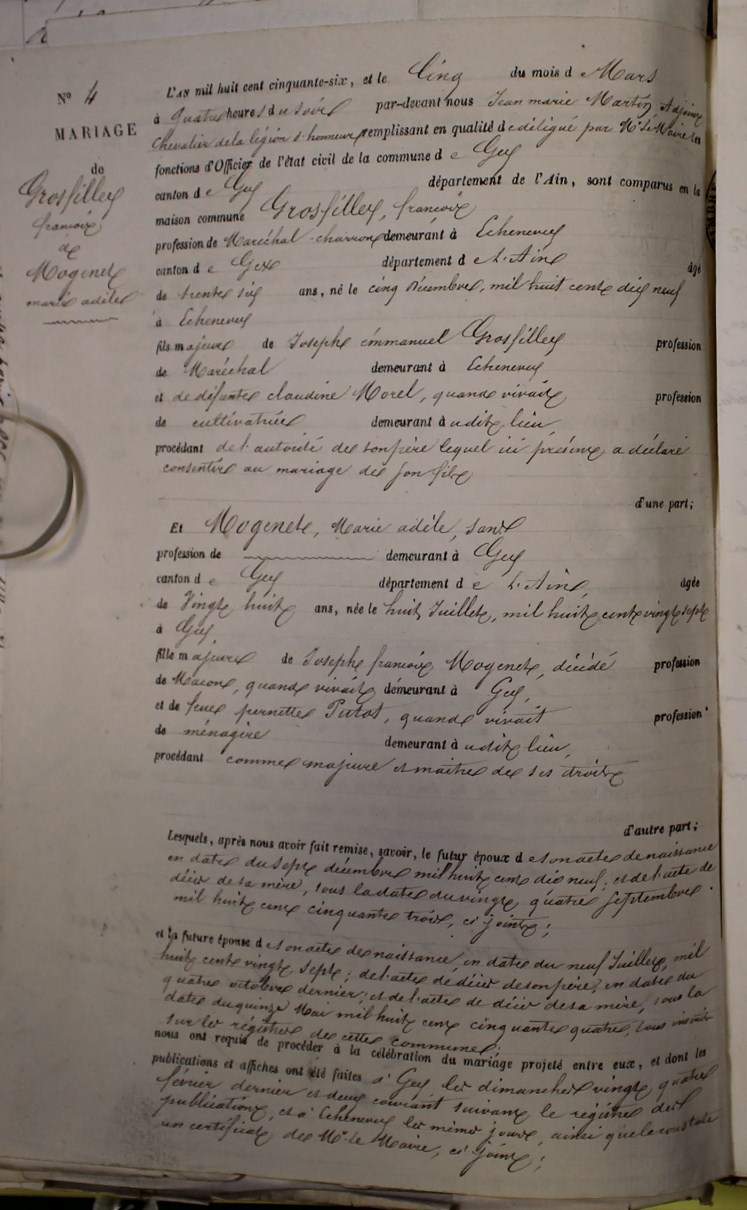 N° 4
MARIAGE
de
Grosfilley
françois
de
Mogenet
marie adèle
L'AN mil huit cent cinquante-six, et le Cinq du mois d Mars
à Quatre heures du soir par-devant nous Jean marie Martin Adjoint
Chevalier de la légion d'honneur remplissant en qualité de délégué par Mr le Maire les
fonctions d'Officier de l'état civil de la commune d e Gex
canton d e Gex département de l'Ain, sont comparus en la
maison commune Grosfilley, françois
profession de Maréchal-charron demeurant à Echenevex
canton d e Gex département d e L'Ain âgé
de trente six ans, né le cinq décembre, mil huit cent dix neuf
à Echenevex
fils majeur de Joseph émmanuel Grosfilley profession
de Maréchal demeurant à Echenevex
et de défunte claudine Morel, quand vivait profession
de cultivatrice demeurant à udit lieu
procédant de l'autorité de son père lequel ici présent a déclaré
consentir au mariage de son fils
d'une part;
Et Mogenet, Marie adèle, sans
profession de demeurant à Gex
canton d e Gex département d e L'Ain, âgée
de Vingt huit ans, née le huit Juillet, mil huit cent vingt sept
à Gex
fille majeure de Joseph françois Mogenet, décédé profession
de Macon, quand vivait demeurant à Gex,
et de feue pernette Putot, quand vivait profession
de ménagère demeurant à udit lieu,
procédant comme majeure et maitre de ses droits
d'autre part;
Lesquels, après nous avoir fait remise, savoir, le futur époux d e son acte de naissance
en date du sept décembre mil huit cent dix neuf; et de l'acte de
décès de sa mère, sous la date du vingt quatre septembre
mil huit cent cinquante trois, ci joints;
et la future épouse d e son acte de naissance, en date du neuf Juillet, mil
huit cent vingt sept; de l'acte de décès de son père, en date du
quatre octobre dernier; et de l'acte de décès de sa mère, sous la
date du quinze Mai mil huit cent cinquante quatre, tous inscrits
sur les régistres de cette commune;
nous ont requis de procéder à la célébration du mariage projeté entre eux, et dont les
publications et affiches ont été faites à Gex les dimanches vingt quatre
février dernier et deux courant suivant le régistre des
publications, et à Echenevex les mêmes jours, ainsi que le constate
un certificat de Mr le Maire, ci joint;